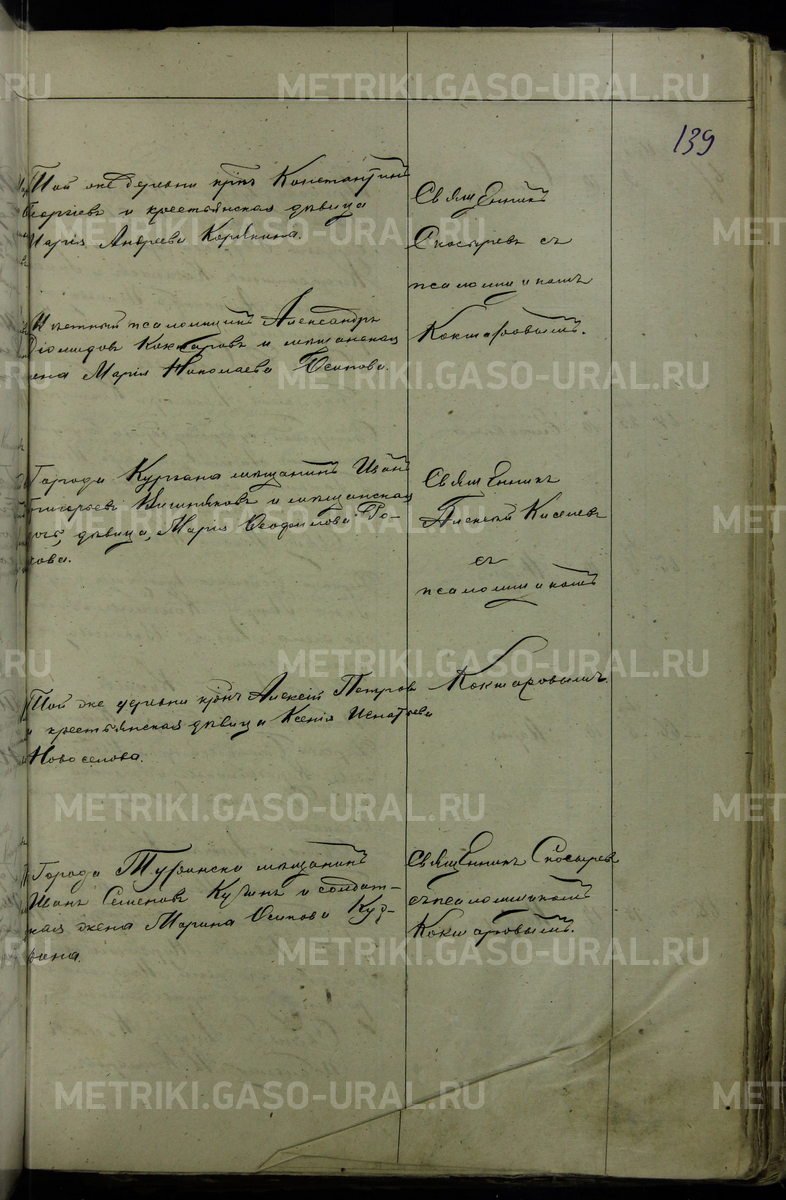 139
Той же деревни крнъ Константинъ
Георгіевъ и крестьянская дѣвица
Марія Андреева Корякина.
Священникъ
Скосыревъ съ
псаломщикомъ
Кокшаровымъ.
Мѣстный псаломщикъ Александръ
Діомидовъ Кокшаровъ и мѣщанская
жена Марія Николаева Осипова.
Города Кургана мѣщанинъ Иванъ
Григорьевъ Вишняковъ и мѣщанская
дѣвица, Марія Ѳеофилова
Священникъ
Алексѣй Киселевъ
съ
псаломщикомъ
Кокшаровымъ
Той же деревни крнъ Алексѣй Петровъ
и крестьянская дѣвица Ксенія Игнатьева
Новоселова.
Города Туринска мѣщанинъ
Иванъ Семеновъ и солдат-
ская жена Марина Осипова
Священникъ Скосыревъ
съ псаломщикомъ
Кокшаровымъ.
METRIKI.GASO-URAL.RU